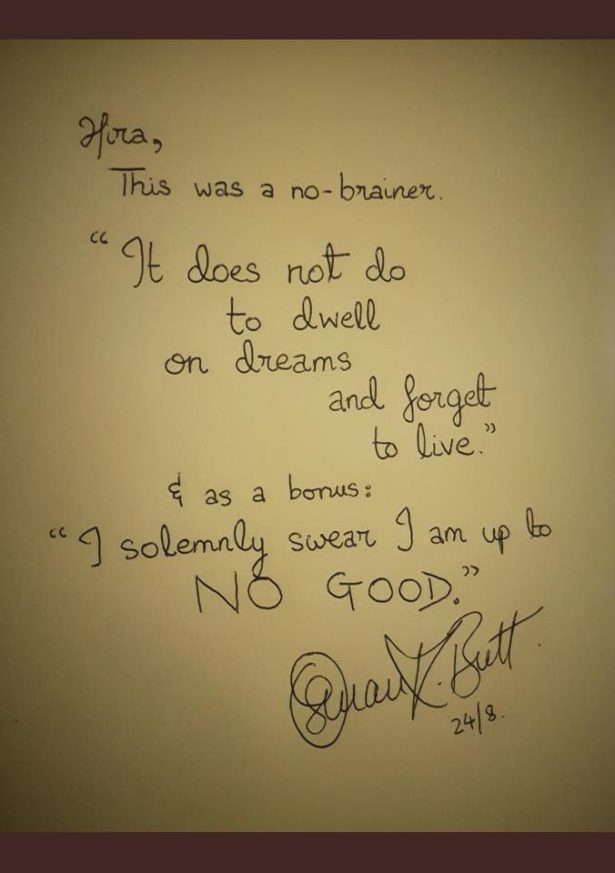 Hira,
This was a no-brainer.
“It does not do
to dwell
on dreams
and forget
to live.”
& as a bonus:
“I solemnly swear I am up to
NO GOOD.”
K. Butt.
24/8.